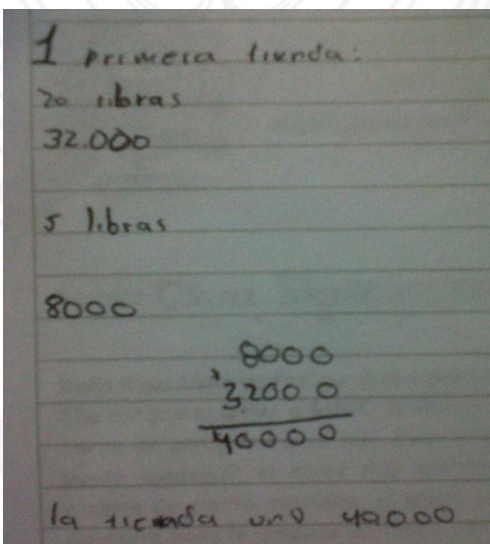 1 primera tienda:
20 libras
32.000
5 libras
8000
8000
+ 32000
40000
la tienda uno 40000